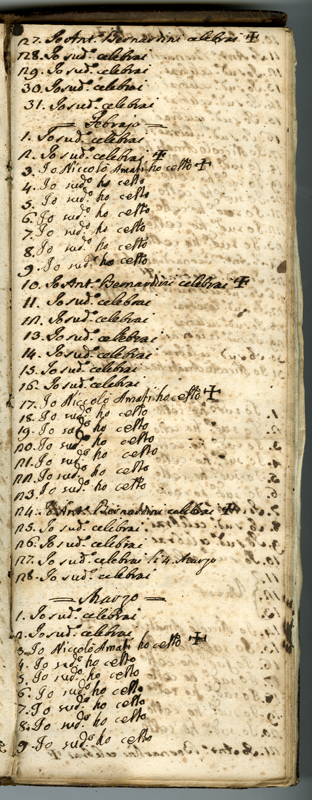 27. Io Ant.º Bernardini celebrai ✝
28. Io sud.º celebrai
29. Io sud.º celebrai
30. Io sud.º celebrai
31. Io sud.º celebrai
= Febrajo =
1. Io sud.º celebrai
2. Io sud.º celebrai ✝
3. Io Niccolò Amati ho celto ✝
4. Io sud.º ho celto
5. Io sud.º ho celto
6. Io sud.º ho celto
7. Io sud.º ho celto
8. Io sud.º ho celto
9. Io sud.º ho celto
10. Io Ant.º Bernardini celebrai ✝
11. Io sud.º celebrai
12. Io sud.º celebrai
13. Io sud.º celebrai
14. Io sud.º celebrai
15. Io sud.º celebrai
16. Io sud.º celebrai
17. Io Niccolò Amati ho celto ✝
18. Io sud.º ho celto
19. Io sud.º ho celto
20. Io sud.º ho celto
21. Io sud.º ho celto
22. Io sud.º ho celto
23. Io sud.º ho celto
24. Io Ant.º Bernardini celebrai ✝
25. Io sud.º celebrai
26. Io sud.º celebrai
27. Io sud.º celebrai li 4. Marzo
28. Io sud.º celebrai
= Marzo =
1. Io sud.º celebrai
2. Io sud.º celebrai
3. Io Niccolò Amati ho celto ✝
4. Io sud.º ho celto
5. Io sud.º ho celto
6. Io sud.º ho celto
7. Io sud.º ho celto
8. Io sud.º ho celto
9. Io sud.º ho celto